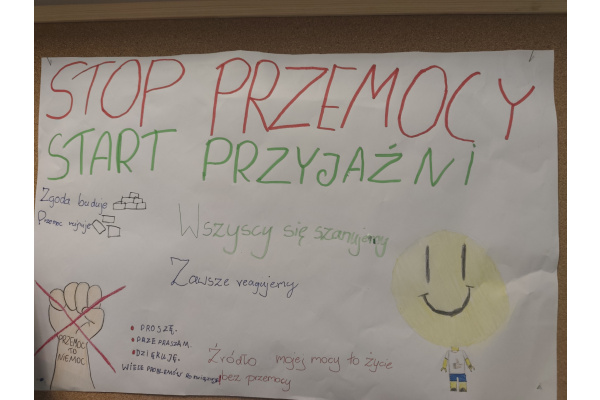 STOP PRZEMOCY
START PRZYJAŹNI
Zgoda buduje
Przemoc rujnuje
Wszyscy się szanujemy
Zawsze reagujemy
PRZEMOC
TO
NIEMOC
• PROSZĘ.
• PRZEPRASZAM.
• DZIĘKUJĘ.
WIELE PROBLEMÓW
Źródło mojej mocy to życie
bez przemocy